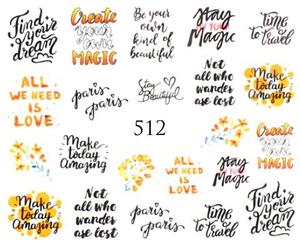 Find your dream
Create your own MAGIC
Be your own kind of beautiful
Stay Magic
Time to travel
ALL WE NEED IS LOVE
paris paris
Stay Beautiful
Not all who wander are lost
Make today Amazing
512
Make today Amazing
Not all who wander are lost
paris paris
ALL WE NEED IS LOVE
Stay Magic
Create your own MAGIC
Make today Amazing
Time to travel
Find your dream